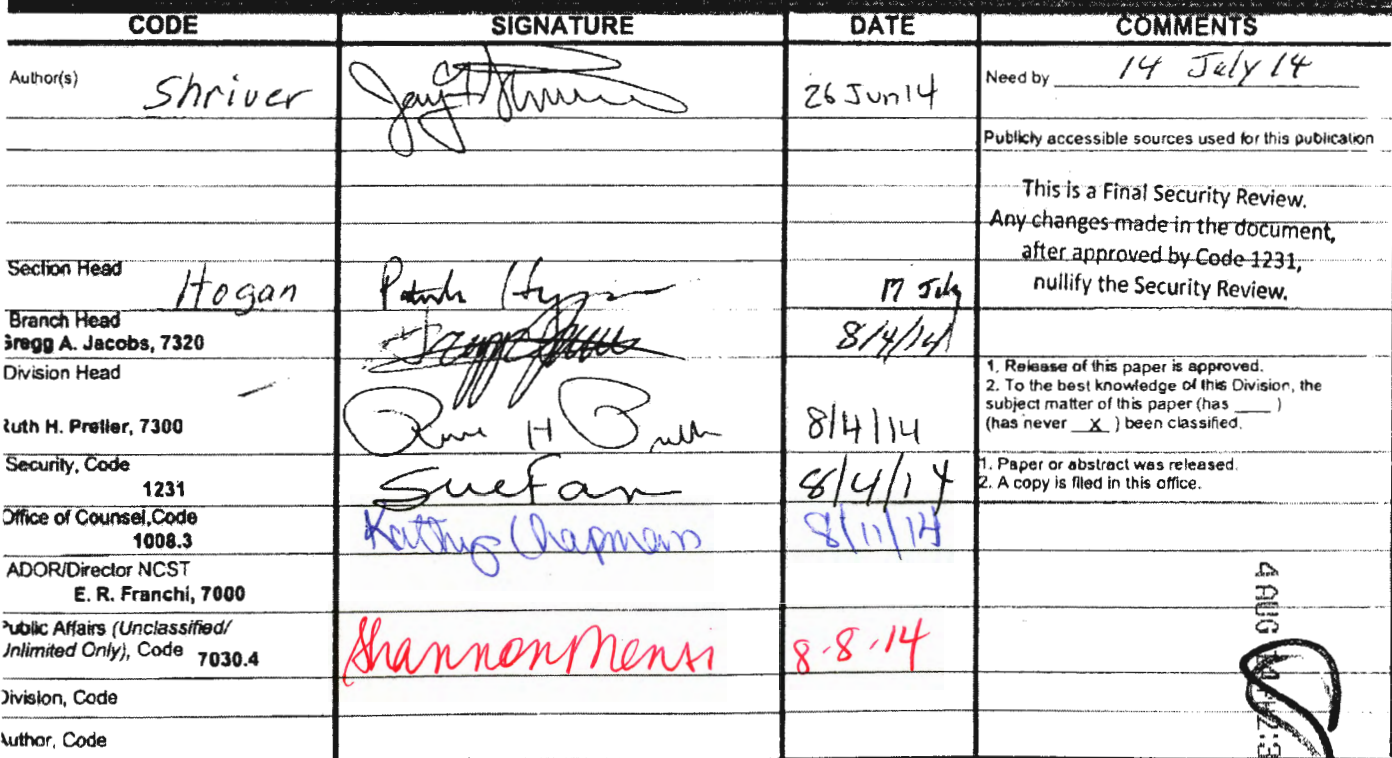 CODE SIGNATURE DATE COMMENTS
Author(s) Shriver 26 Jun 14 Need by 14 July 14
Publicly accessible sources used for this publication
This is a Final Security Review.
Any changes made in the document,
after approved by Code 1231,
nullify the Security Review.
Section Head
Hogan 17 July
Branch Head
Gregg A. Jacobs, 7320 8/4/14
Division Head
1. Release of this paper is approved.
2. To the best knowledge of this Division, the
subject matter of this paper (has ____ )
(has never X ) been classified.
Ruth H. Preller, 7300 Ruth H 8/4/14
Security, Code
1231 8/4/14
1. Paper or abstract was released.
2. A copy is filed in this office.
Office of Counsel,Code
1008.3 Kathy Chapman 8/11/14
ADOR/Director NCST
E. R. Franchi, 7000
Public Affairs (Unclassified/
Unlimited Only), Code 7030.4 Shannon Mensi 8-8-14
Division, Code
Author, Code
4 AUG